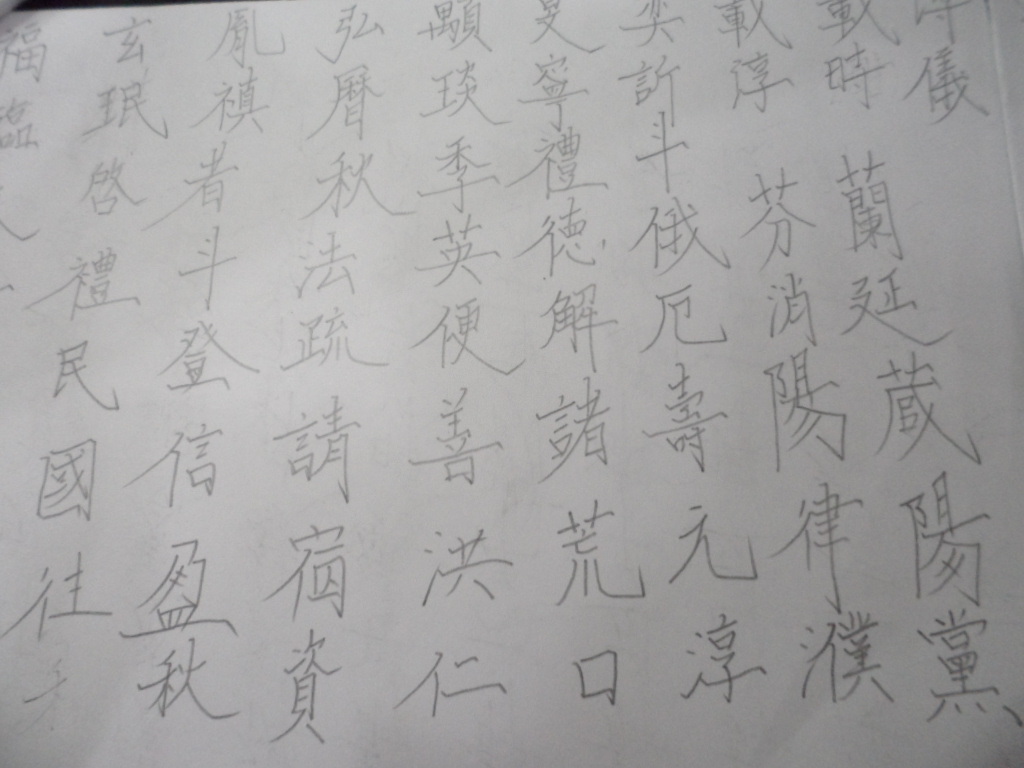 福 玄 胤 弘 顒 旻 奕 載 載 溥
臨 珉 禛 曆 琰 寧 訢 淳 時 儀
啓 者 秋 季 禮 斗
禮 斗 法 英 徳 俄 芬 蘭
民 登 疏 便 解 厄 消 延
國 信 請 善 諸 壽 陽 蔵
往 盈 宿 洪 荒 元 律 陽
秋 資 仁 日 淳 濮 黨